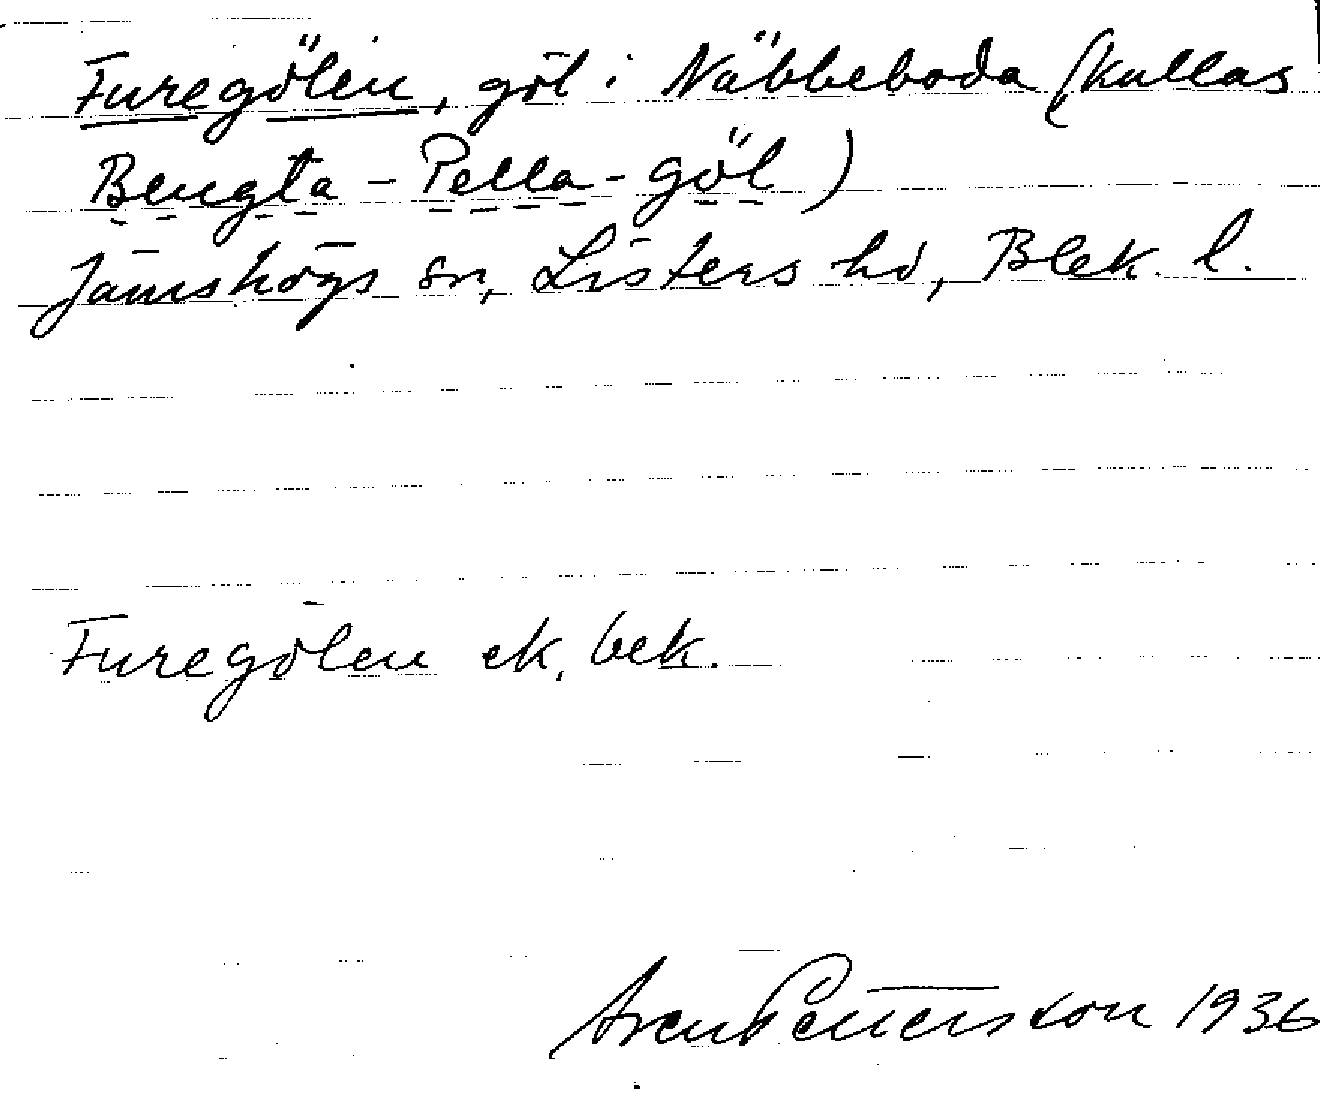 Furegölen, göl i Näbbeboda (kallas
Bengta-Pella-göl)
Jämshögs sn, Listers hd, Blek. l.
Furegölen ek. bek.
Sven Petterson 1936